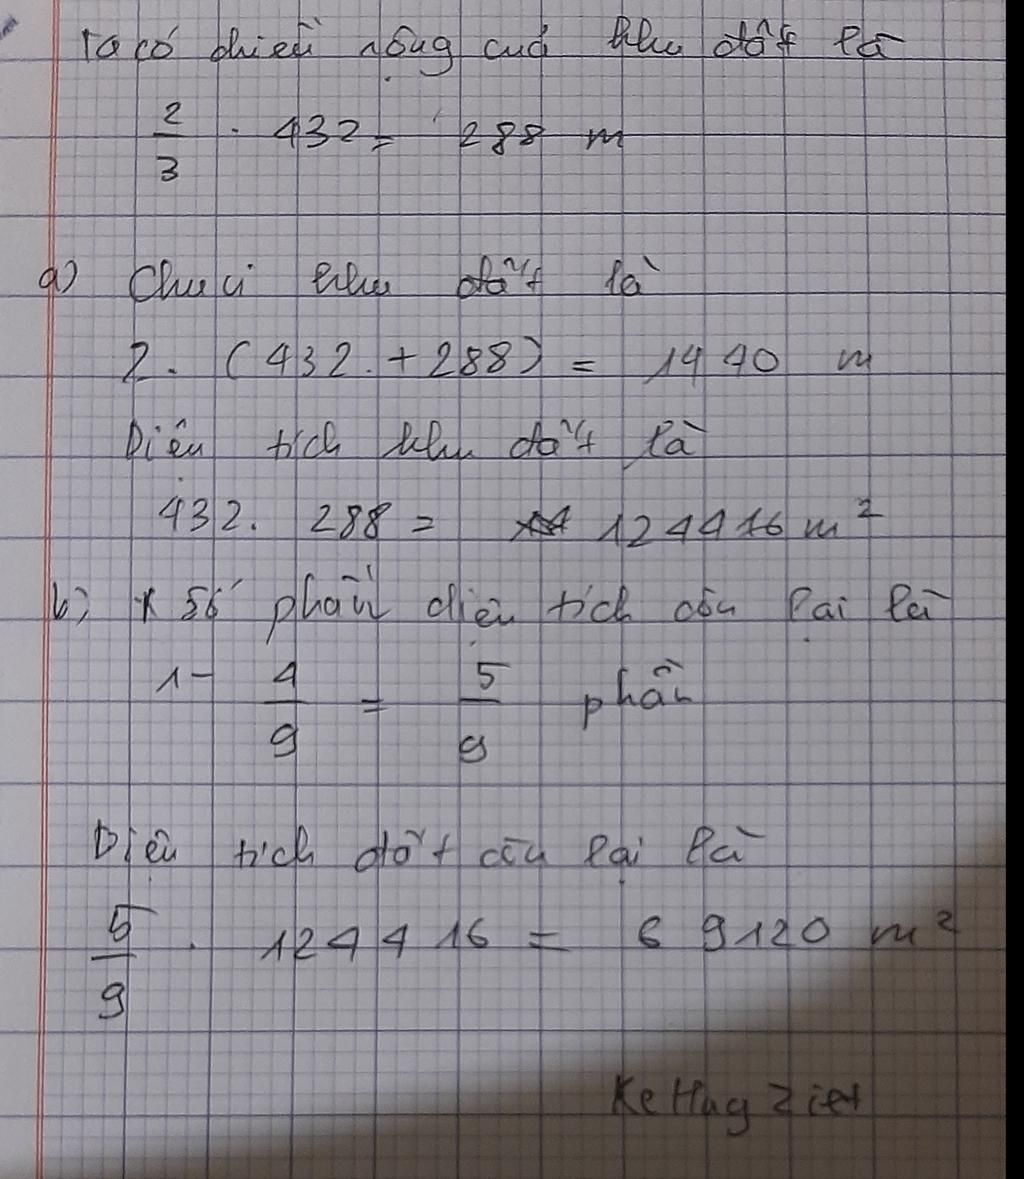 Ta có chiều rộng cuả khu đất là
2/3 . 432 = 288 m
a) Chu vi khu đất là
2. (432 + 288) = 1440 m
Diện tích khu đất là
432. 288 = 124416 m²
b) * Số phần diện tích còn lại là
1 - 4/9 = 5/9 phần
Diện tích đất còn lại là
5/9 . 124416 = 69120 m²
KeHug Ziet